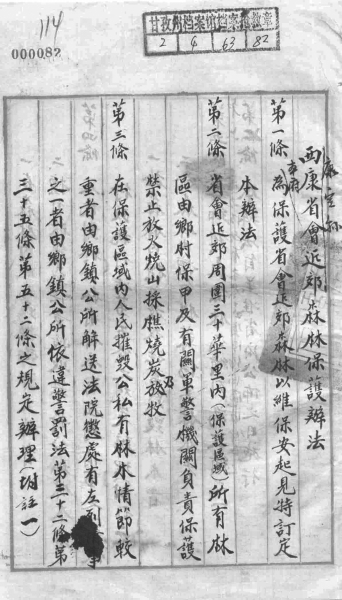 114
000082
甘孜州档案馆档案
2 4 63 82
康定縣
西康省會近郊森林保護辦法
第一條 本府為保護省會近郊森林以維保安起見特訂定
本辦法
第二條 省會近郊周圍三十華里內(保護區域)所有林
區由鄉村保甲及有關軍警機關負責保護
禁止放火燒山採樵燒炭及放牧
第三條 在保護區域內人民摧毀公私有林木情節較
重者由鄉鎮公所解送法院懲處有左列
之一者由鄉鎮公所依違警罰法第三十二條第
三十五條第五十二條之規定辦理(附註一)